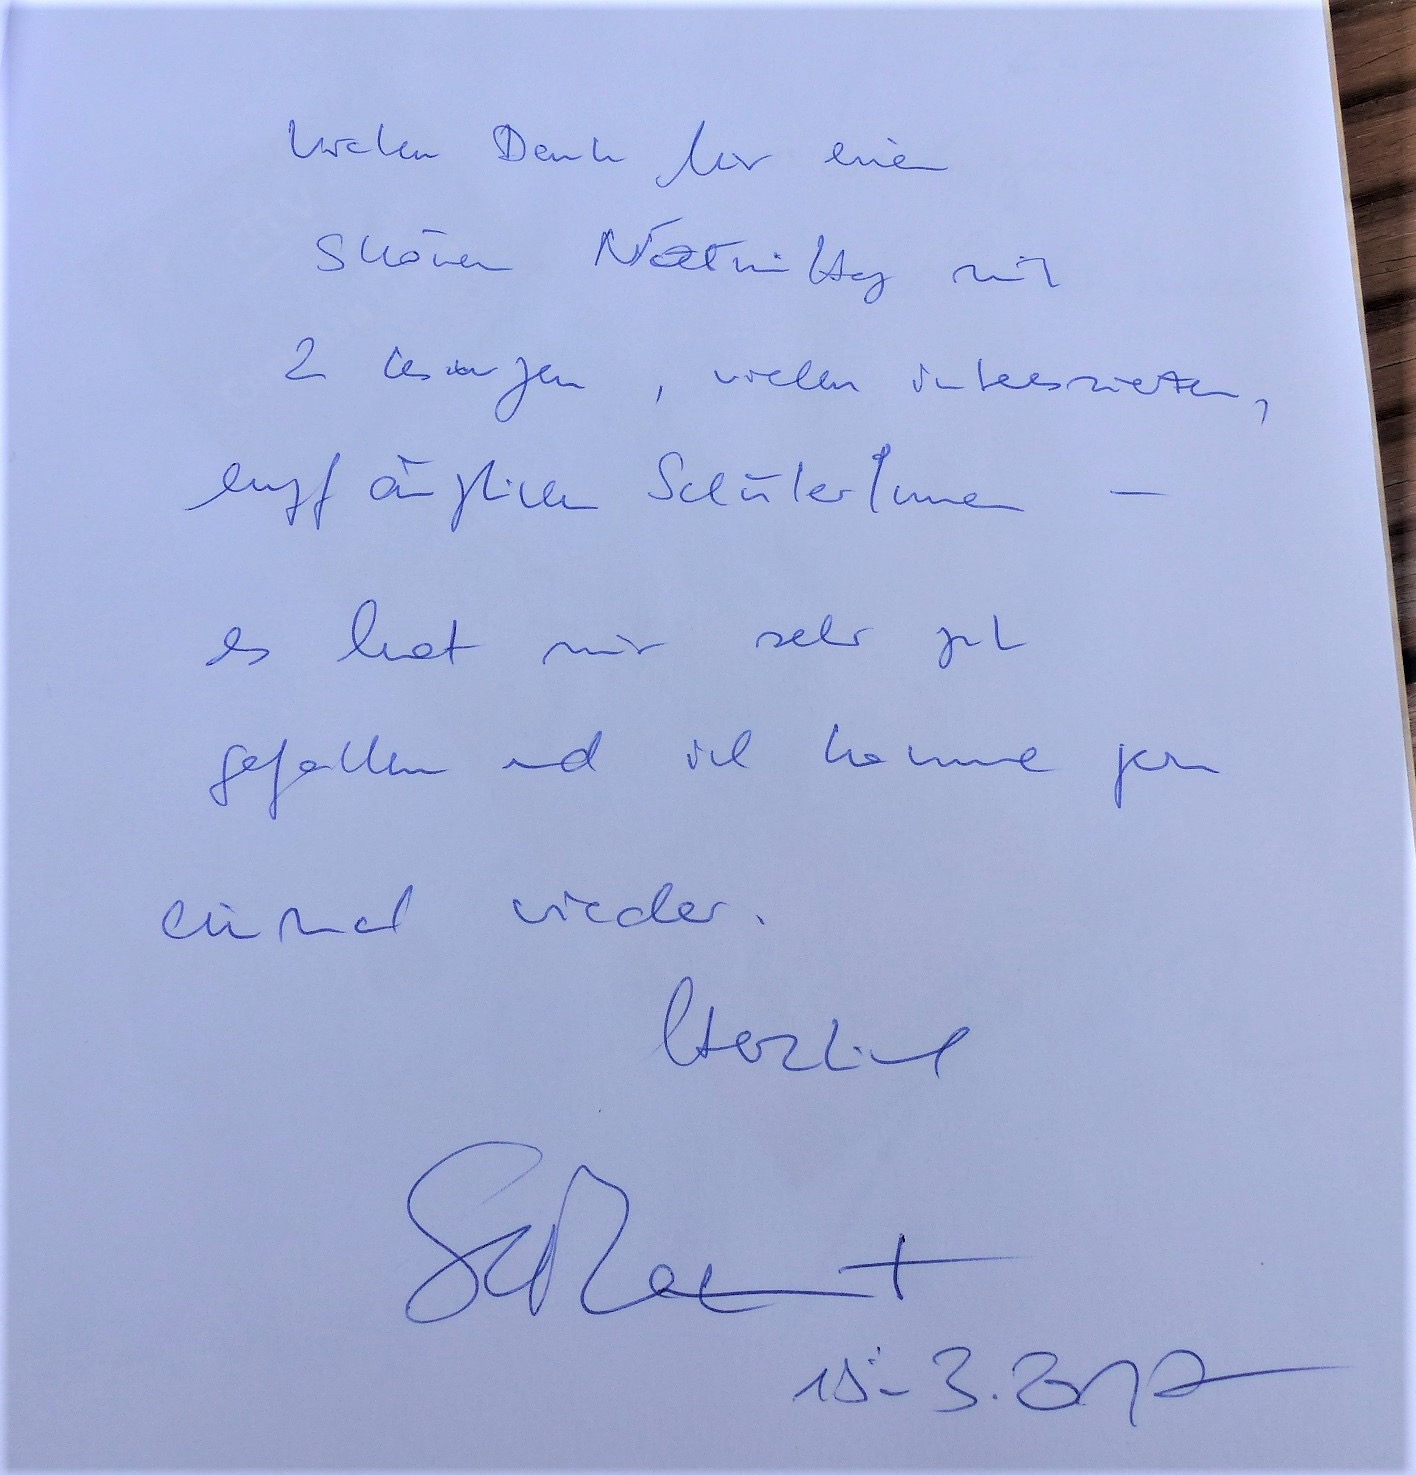 Vielen Dank für einen
schönen Nachmittag mit
2 Lesungen, vielen interessierten,
empfänglichen SchülerInnen –
es hat mir sehr gut
gefallen und ich komme gern
einmal wieder.
Herzlich
15.3.2017